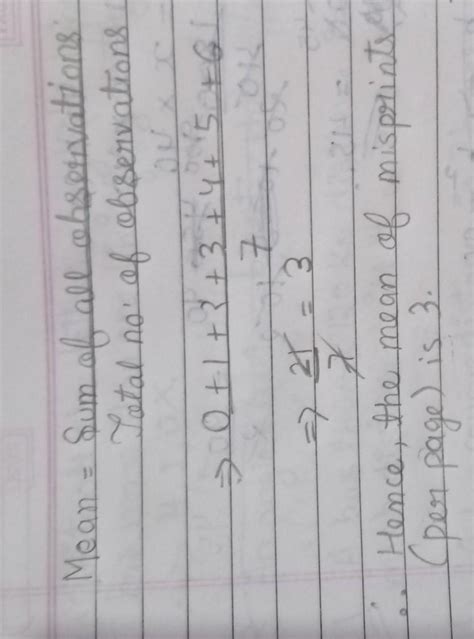 Mean = Sum of all observations
Total no. of observations
⇒ 0 + 1 + 2 + 3 + 4 + 5 + 6
7
⇒ 21 = 3
7
∴ Hence, the mean of misprints
(per page) is 3.